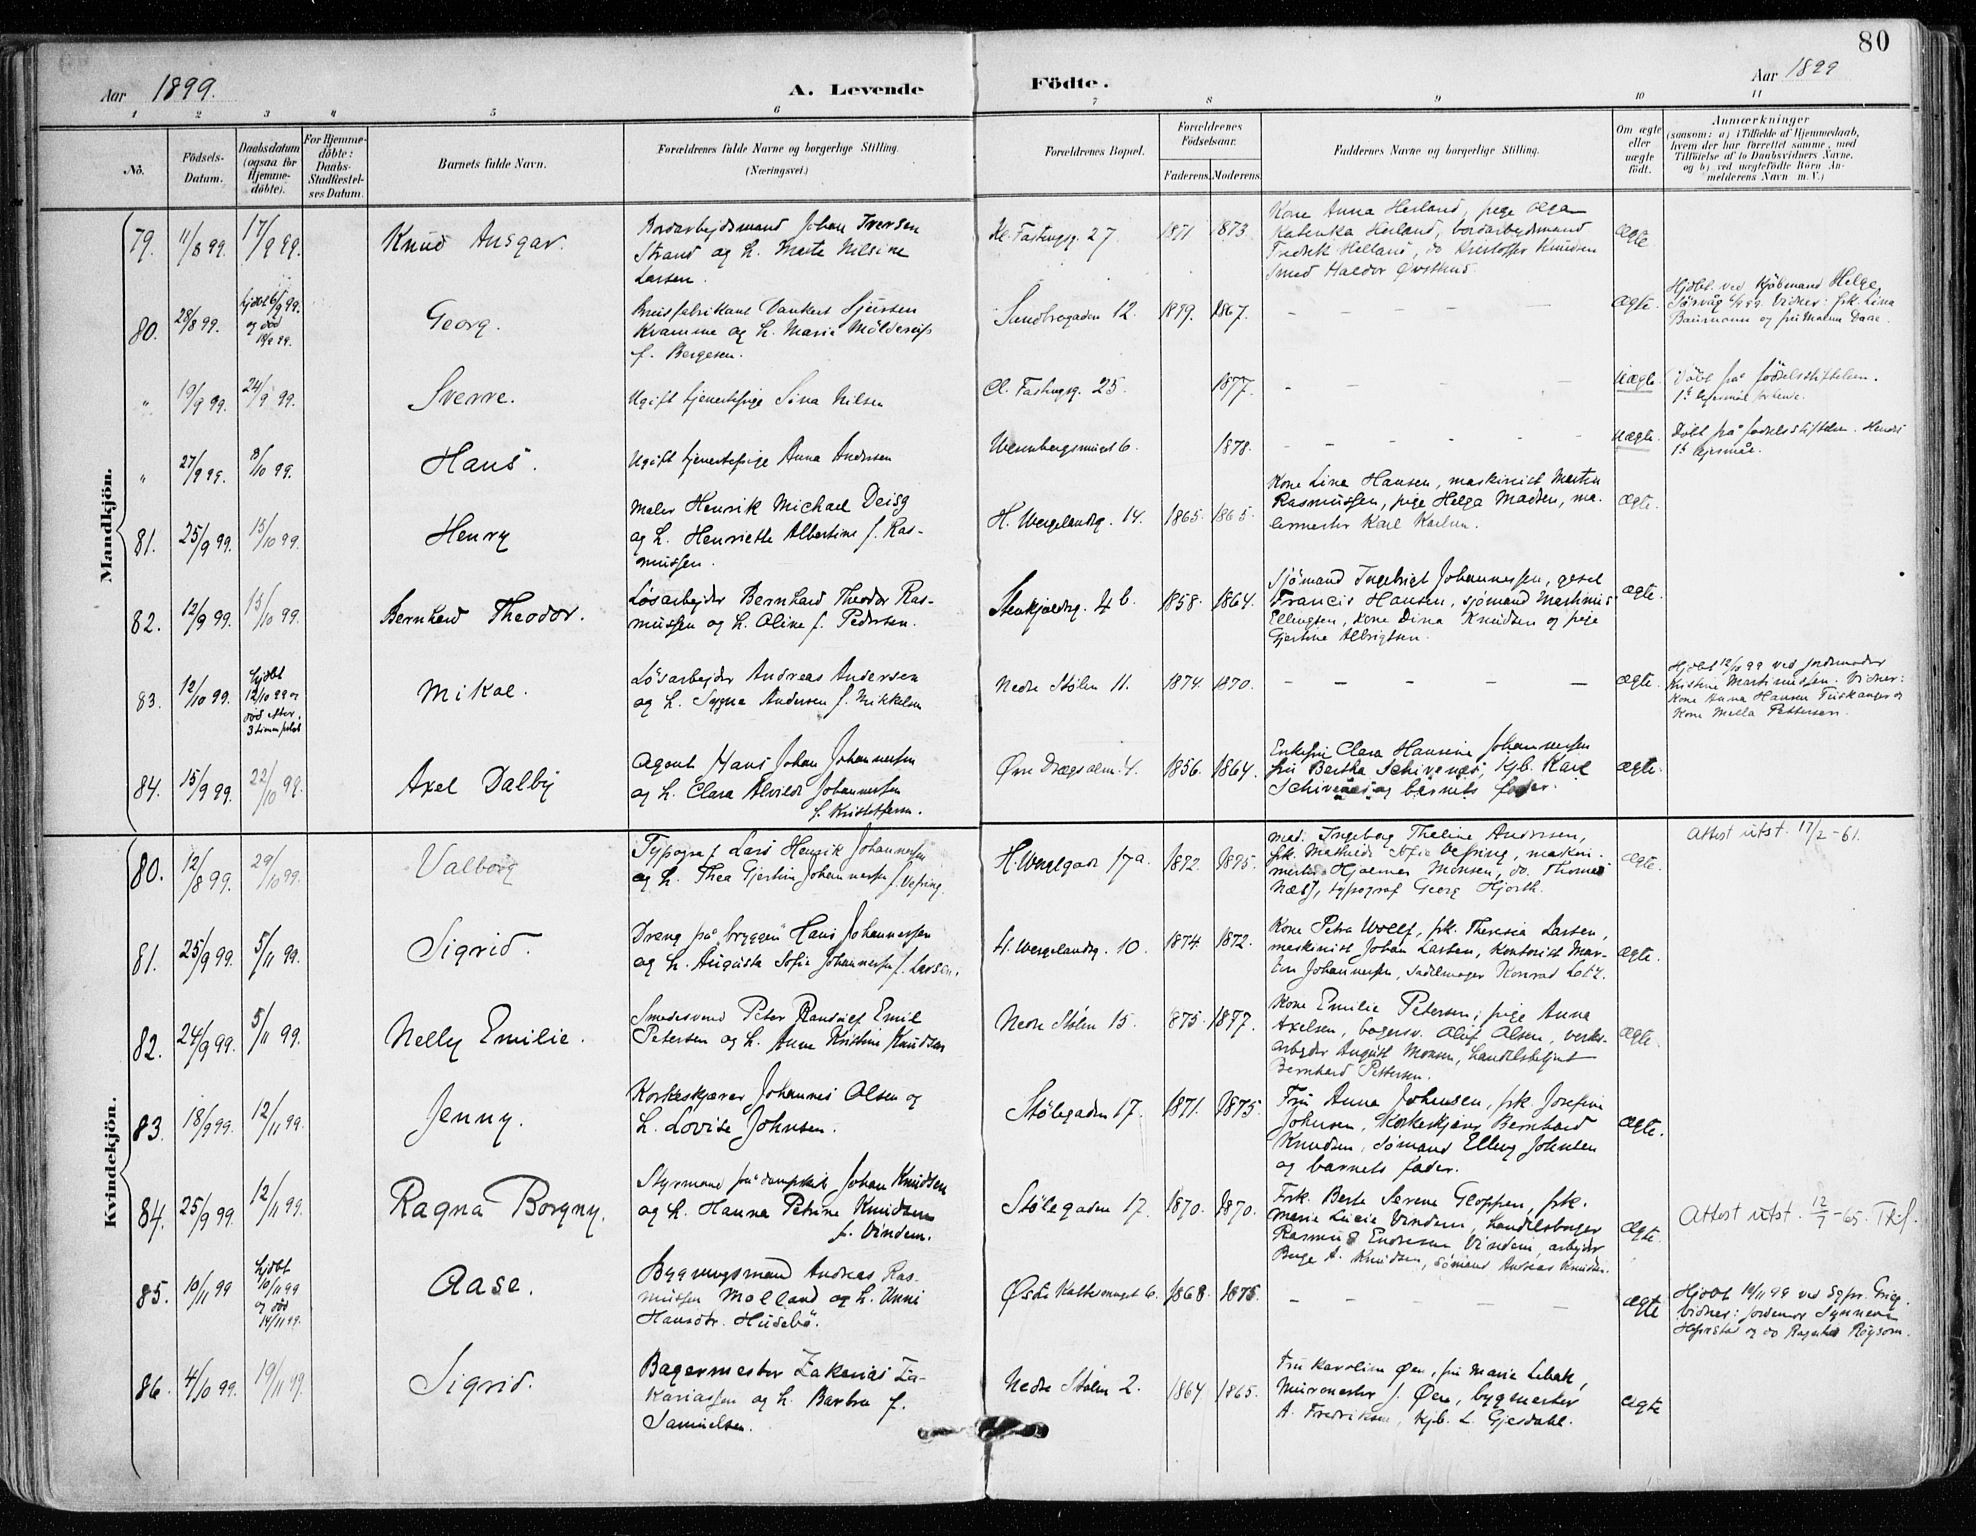 80
Aar 1899.
A. Levende Födte.
Aar 1899
1 2 3 4 5 6 7 8 9 10 11
No.
Födsels-Datum.
Daabsdatum (ogsaa for Hjemme-döbte).
For Hjemme-döbte: Daabs-Stadfæstel-ses Datum.
Barnets fulde Navn.
Forældrenes fulde Navne og borgerlige Stilling. (Næringsvei.)
Forældrenes Bopæl.
Forældrenes Födselsaar.
Faderens. Moderens.
Faddernes Navne og borgerlige Stilling.
Om ægte eller uægte födt.
Anmærkninger
(saasom: a) i Tilfælde af Hjemmedaab,
hvem der har forrettet samme, med
Tilföielse af to Daabsvidners Navne,
og b) ved uægtefödte Börn An-
melderens Navn m. V.)
Mandkjön.
79. 11/8 99. 17/9 99. Knud Ansgar.
Bordarbejdsmand Johan Iversen
Strand og h. Marta Nilsine
Larsen.
Kl. Fastingsg. 27 1871 1873.
Kone Anna Herland, pige Olga
Katinka Herland, bordarbejdsmand
Fredrik Helland, do Kristoffer Knudsen
Smed Haldor Øvsthus.
ægte
80. 28/8 99. hjdøbt 6/9 99. og død Georg.
Kvamme og h. Maria
f. Bergesen.
Sundtsgaden 12. 1867.
– – – – –
ægte.
Hjdøbt. ved Kjøbmand Helge
Vidner: frk. Lina
og frk Malm Daae.
" 19/9 99. 24/9 99. Sverre.
Ugift tjenestepige Sina Nilsen
Cl. Fastingsg. 25. 1877.
– – – – –
Uægte.
Døbt på fødselsstiftelsen.
1ste lejermål
" 27/9 99. 8/10 99. Hans.
Ugift tjenestepige Anna Andersen
6. 1878.
– – – – –
uægte.
Døbt på fødselsstiftelsen. Hendes
1ste lejermål.
81. 25/9 99. 15/10 99. Henry
Maler Henrik Michael Deisg
og h. Henriette Albertine f. Ras-
mussen.
H. Wergelandsg. 14. 1865. 1865.
Kone Lina Hansen, maskinist Martin
Rasmussen, pige Helga Madsen, ma-
lermester Karl Karlsen.
ægte.
82. 12/9 99. 15/10 99. Bernhard Theodor.
Løsarbejder Bernhard Theodor Ras-
mussen og h. Oline f. Pedersen.
4 b. 1858. 1864.
Sjømand Ingebrigt Johannessen, gesel
Francis Hansen, sjømand Martinius
Ellingsen, kone Dina Knudsen og pige
Gjertine Albrigtsen.
ægte.
83. 12/10 99. hjdøbt 12/10 99 og død efter 3 timers Mikal.
Løsarbejder Andreas Andersen
og h. Sygna Andersen f. Mikkelsen
Nedre Stølen 11. 1874. 1870.
– – – – –
ægte.
Hjdøbt 12/10 99 ved jordemoder
Kristine Martinussen. Vidner:
Kone Anna Hansen og
Kone Milla Pettersen.
84. 15/9 99. 22/10 99. Axel Dalby
Agent Hans Johan Johannesen
og h. Clara Alvilde Johannesen
f. Kristoffersen.
Øvre Dræggsalm. 4. 1856. 1864.
Enkefru Clara Hansine Johannesen
fru Bertha Schivenæs, Kjb. Karl
Schivenæs og barnets fader.
ægte.
Kvindekjön.
80. 12/8 99. 29/10 99. Valborg
Typograf Lars Henrik Johannesen
og h. Thea Gjertine Johannesen f. Vefring.
H. Wergelgade 17a. 1872. 1875.
mad. Ingeborg Thelina Andersen,
frk. Mathilde Sofie Vefring, maskin-
mester Hjalmar Monsen, do. Thomas
Næss, typograf Georg Hjorth.
ægte.
Attest utst. 17/2 - 61.
81. 25/9 99. 5/11 99. Sigrid.
Dreng på bryggen Hans Johannessen
og h. Augusta Sofie Johannesen f. Larsen.
H. Wergelandsg. 10. 1874. 1872.
Kone Petra Wolff, frk. Theresia Larsen,
maskinist Johan Larsen, kontorist Mar-
tin Johannesen, sadelmager Konrad Lotz.
ægte.
82. 24/9 99. 5/11 99. Nelly Emilie.
Smedesvend Peter Randulf Emil
Petersen og h. Anne Kristine Knudsen
Nedre Stølen 15. 1875. 1877.
Kone Emilie Petersen, pige Anna
Axelsen, bagersv. Oluf Olsen, verks-
arbejder August Monsen, handelsbetjent
Bernhard Pettersen.
ægte.
83. 18/9 99. 12/11 99. Jenny.
Korkeskjærer Johannes Olsen og
h. Lovise Johnsen.
Stølegaden 17. 1871. 1875.
Fru Anna Johnsen, frk. Josefine
Johnsen, Korkeskjærer Bernhard
Knudsen, sømand Elling Johnsen
og barnets fader.
ægte.
84. 25/9 99. 12/11 99. Ragna Borgny.
Styrmand på dampskib Johan Knudsen
og h. Hanna Petrine Knudsen
f. Vindem.
Stølegaden 17. 1870. 1870.
Frk. Berte Serene Gloppen, frk.
Marie Lucie Vindem, handelsborger
Rasmus Endresen Vindem, arbejder
Berge A. Knudsen, sømand Andreas Knudsen.
ægte.
Attest utst. 12/7 - 65.
85. 10/11 99 hjdøbt 10/11 99 og død 14/11 99. Aase.
Bygningsmand Andreas Ras-
mussen Molland og h. Unni
Hansdtr. Husebø.
Østre 6. 1868. 1875.
– – – – –
ægte
Hjdøbt 10/11 99 ved Sgpr. Grieg.
Vidner: Jordemor Synneve
og do
86. 4/10 99. 19/11 99. Sigrid.
Bagermester Zakarias Za-
kariassen og h. Barbra f.
Samuelsen.
Nedre Stølen 2. 1864. 1865.
Fru Karoline Øen, fru Marie
Murmester J. Øen, bygmester
A. Fredriksen, kjb. L. Gjesdahl.
ægte